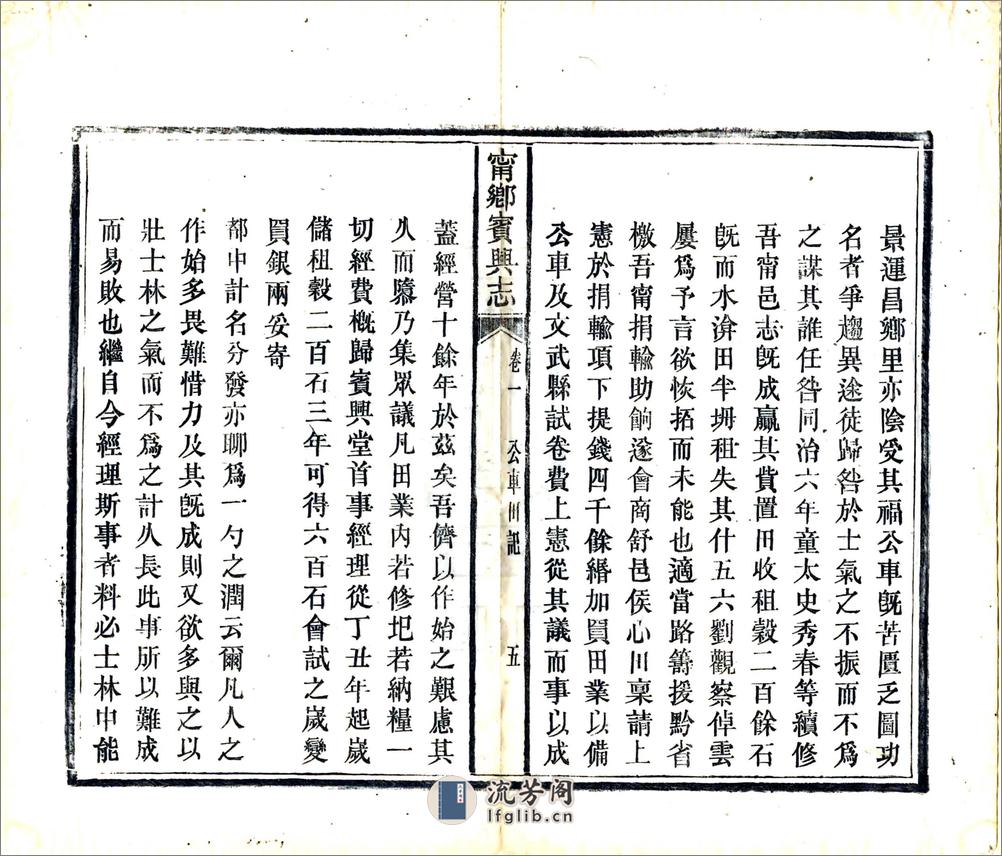 景運昌鄉里亦陰受其福公車旣苦匱乏圖功
名者爭趨異途徒歸咎於士氣之不振而不爲
之謀其誰任咎同治六年童太史秀春等續修
吾甯邑志旣成贏其貲置田收租穀二百餘石
旣而水渰田半坍租失其什五六劉觀察倬雲
屢爲予言欲恢拓而未能也適當路籌援黔省
檄吾甯捐輸助餉遂會商舒邑侯心川稟請上
憲於捐輸項下提錢四千餘緡加買田業以備
公車及文武縣試卷費上憲從其議而事以成
甯鄉賓興志
卷一
公車田記
五
蓋經營十餘年於茲矣吾儕以作始之艱慮其
久而隳乃集眾議凡田業內若修圯若納糧一
切經費概歸賓興堂首事經理從丁丑年起歲
儲租穀二百石三年可得六百石會試之歲變
買銀兩妥寄
都中計名分發亦聊爲一勺之潤云爾凡人之
作始多畏難惜力及其旣成則又欲多與之以
壯士林之氣而不爲之計久長此事所以難成
而易敗也繼自今經理斯事者料必士林中能
流芳阁
lfglib.cn